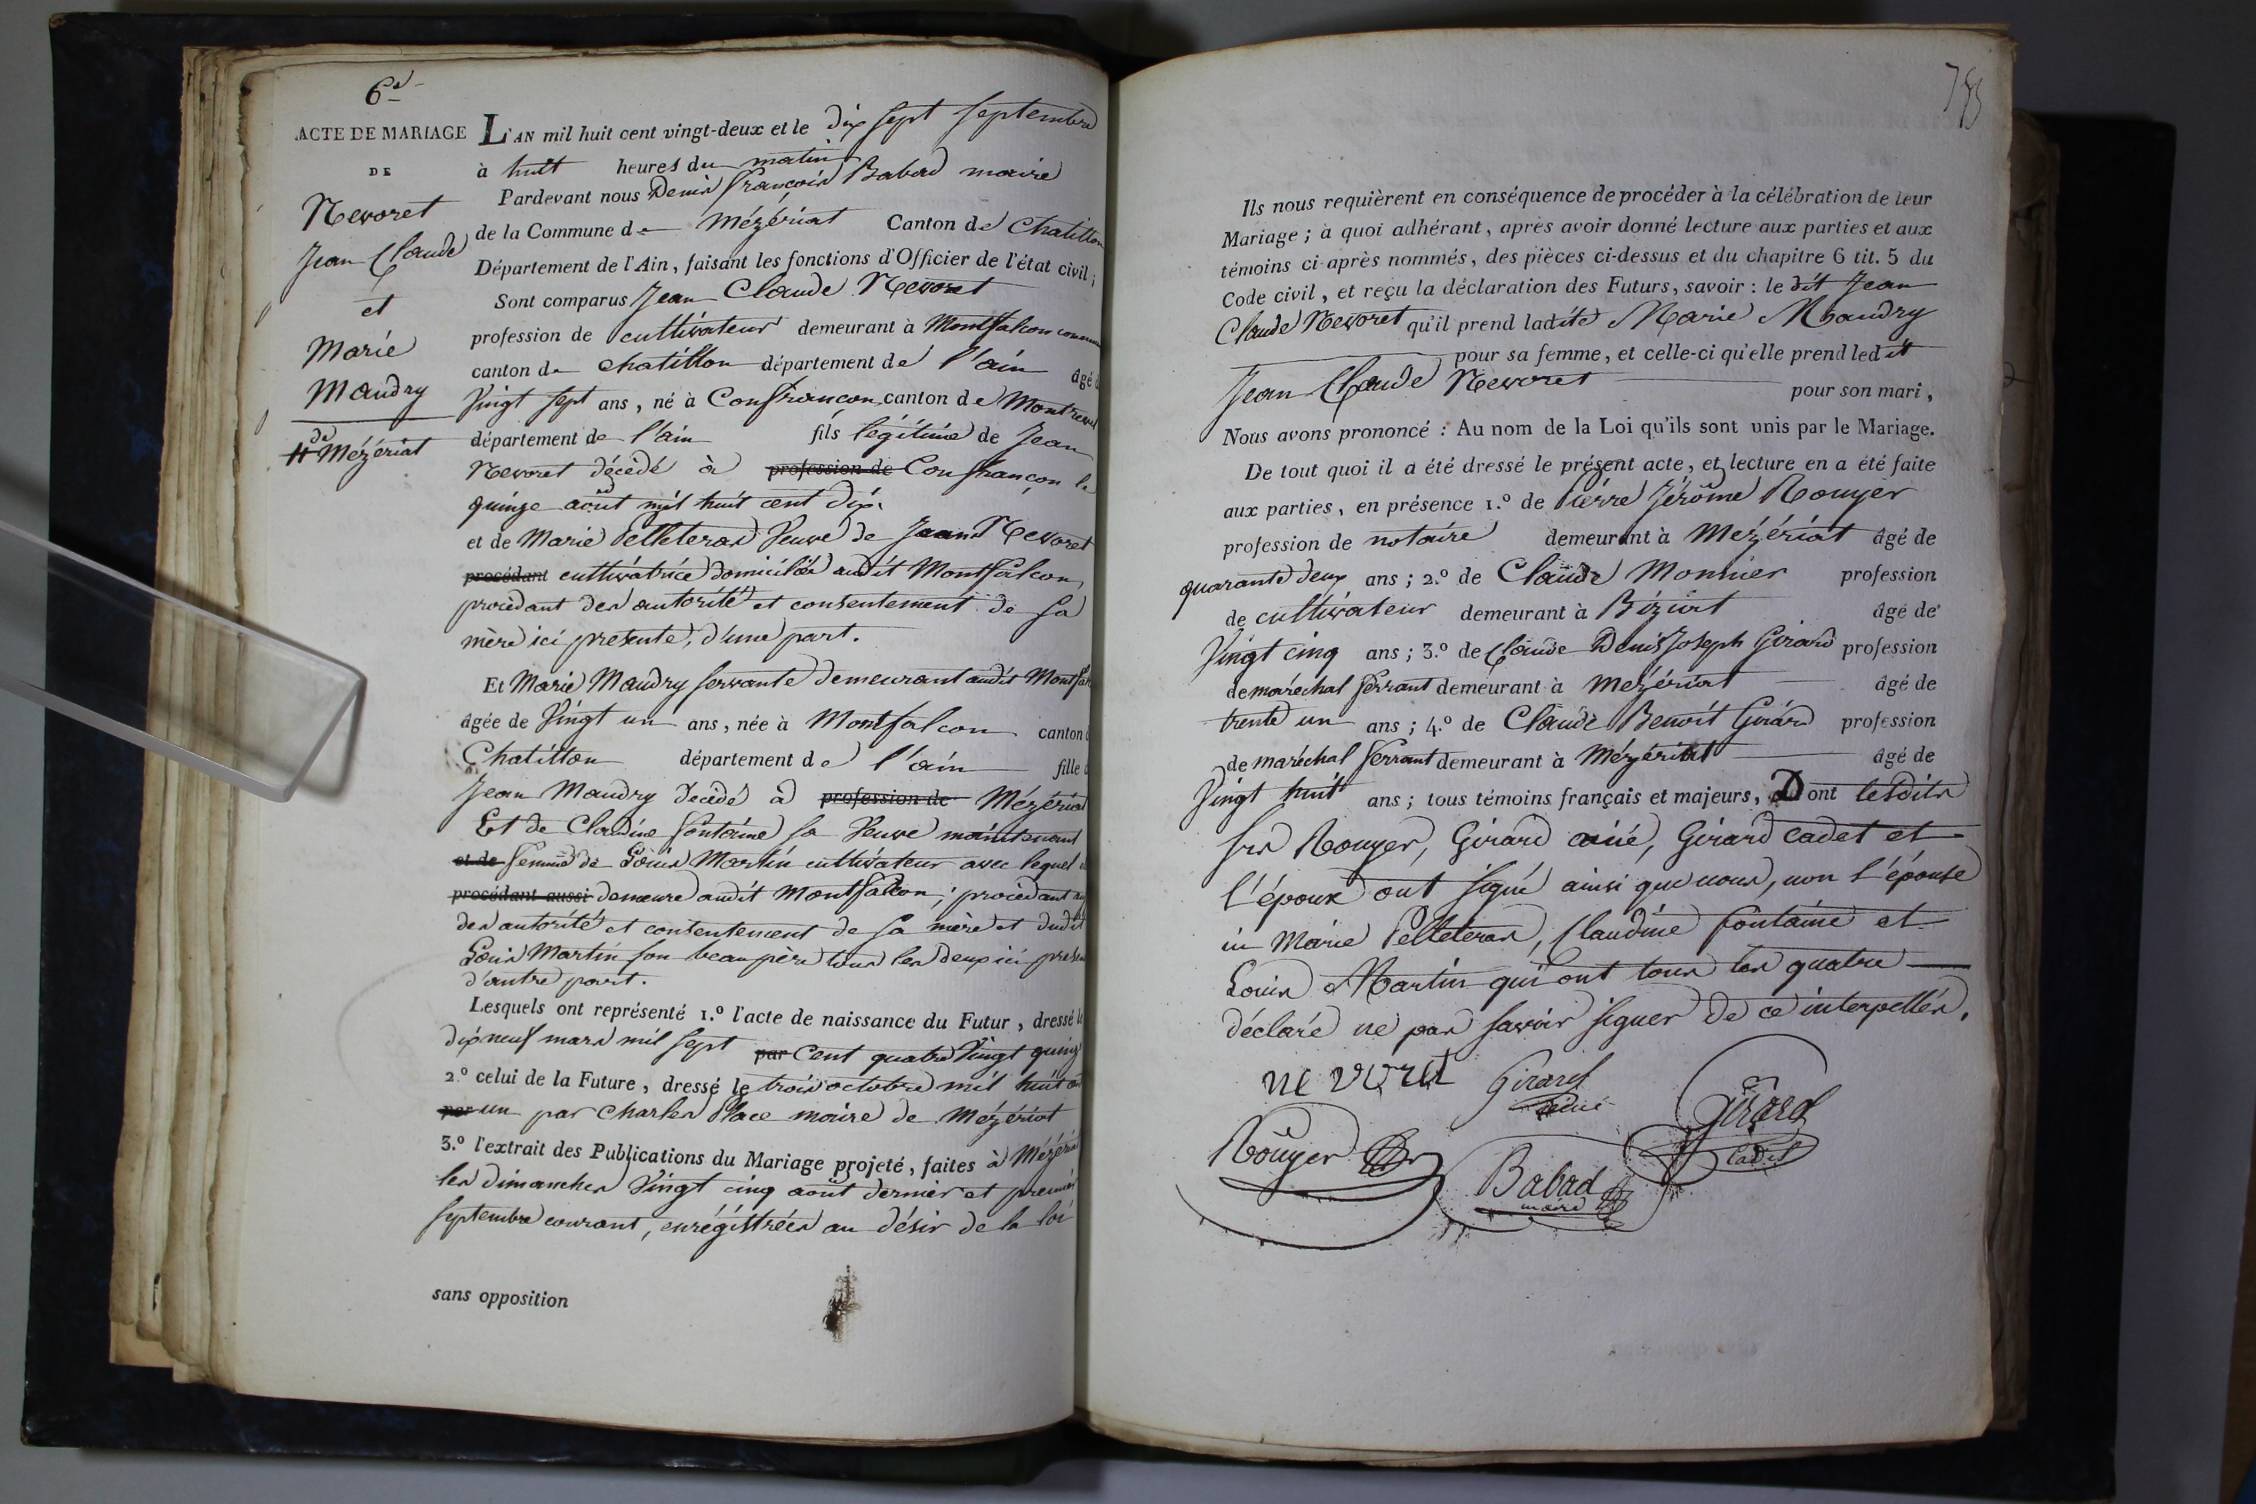 6e
ACTE DE MARIAGE
DE
Nevoret
Jean Claude
et
Marie
Maudry
de Mézériat
L'AN mil huit cent vingt-deux et le dix sept septembre
à huit heures du matin
Pardevant nous Denis François Babad maire
de la Commune de Mézériat Canton de Chatillon
Département de l'Ain, faisant les fonctions d'Officier de l'état civil;
Sont comparus Jean Claude Nevoret
profession de cultivateur demeurant à Montfalcon commune
canton de chatillon département de l'ain âgé d
Vingt sept ans, né à Confrancon canton de Montrevel
département de l'ain fils légitime de Jean
Nevoret décédé à profession de Confrançon le
quinze août mil huit cent dix.
et de Marie Pelleteras Veuve de Jean Nevoret
procédant cultivatrice domiciliée audit Montfalcon,
procedant des autorité et consentement de sa
mère ici presente, d'une part.
Et Marie Maudry servante demeurant audit Montfal
âgée de Vingt un ans, née à Montfalcon canton d
Chatillon département de l'ain fille d
Jean Maudry decédé à profession de Mézériat
Et de Claudine fontaine sa Veuve maintenant
et de femme de Louis Martin cultivateur avec lequel
procédant aussi demeure audit Montfalcon; procedant
des autorité et consentement de sa mère et dudit
Louis Martin son beau père tous les deux ici presen
d'autre part.
Lesquels ont représenté 1.º l'acte de naissance du Futur, dressé le
dix neuf mars mil sept par Cent quatre Vingt quinz
2.º celui de la Future, dressé le trois octobre mil huit cent
par un par Charles Place maire de Mézériat
3.º l'extrait des Publications du Mariage projeté, faites à Mézériat
les dimanches Vingt cinq août dernier et premier
septembre courant, enrégistrées au désir de la loi
sans opposition
Ils nous requièrent en conséquence de procéder à la célébration de leur
Mariage; à quoi adhérant, après avoir donné lecture aux parties et aux
témoins ci-après nommés, des pièces ci-dessus et du chapitre 6 tit. 5 du
Code civil, et reçu la déclaration des Futurs, savoir: le dit Jean
Claude Nevoret qu'il prend ladite Marie Maudry
pour sa femme, et celle-ci qu'elle prend ledit
Jean Claude Nevoret pour son mari,
Nous avons prononcé : Au nom de la Loi qu'ils sont unis par le Mariage.
De tout quoi il a été dressé le présent acte, et lecture en a été faite
aux parties, en présence 1.º de Pierre Jérôme Rouyer
profession de notaire demeurant à Mézériat âgé de
quarante deux ans; 2.º de Claude Monnier profession
de cultivateur demeurant à Biziat âgé de
Vingt cinq ans; 3.º de Claude Denis Joseph Girard profession
de maréchal ferrant demeurant à Mézériat âgé de
trente un ans; 4.º de Claude Benoit Girard profession
de maréchal ferrant demeurant à Mézériat âgé de
Vingt huit ans; tous témoins français et majeurs, Dont lesdits
srs Rouyer, Girard ainé, Girard cadet et
l'époux ont signé ainsi que nous, non l'épouse
ni Marie Pelleteras, Claudine fontaine et
Louis Martin qui ont tous les quatre
déclaré ne pas savoir signer de ce interpellés.
nevoret Girard ainé Girard cadet
Rouyer Babad maire